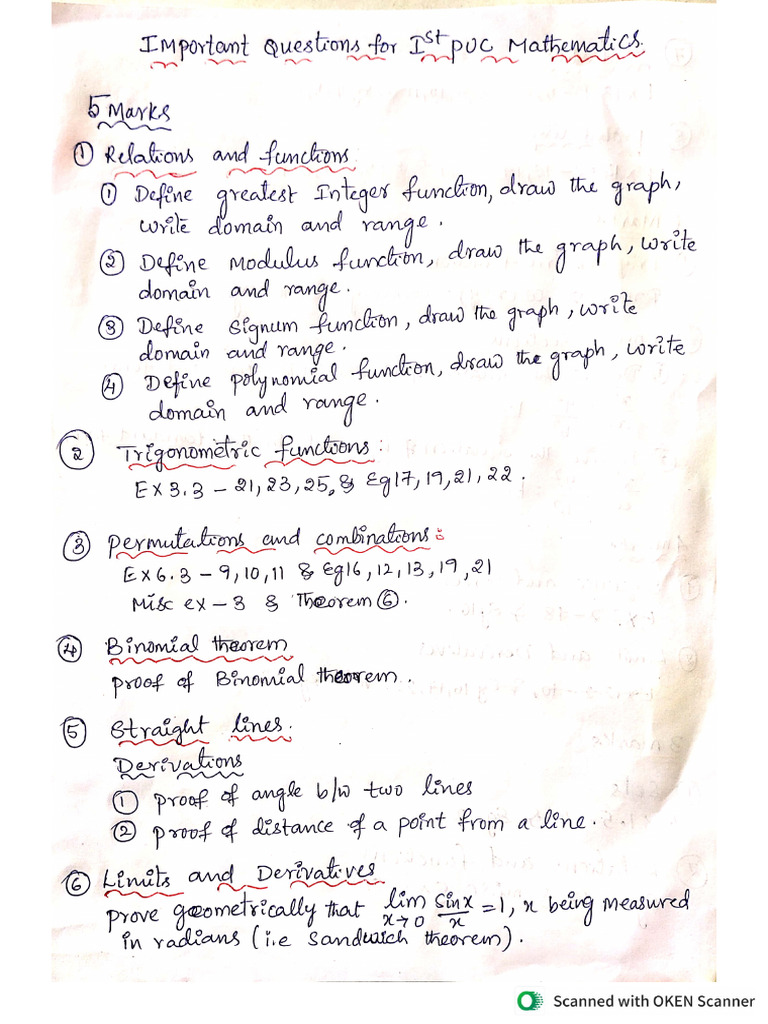 Important Questions for Ist PUC Mathematics.
5 Marks
① Relations and functions
① Define greatest Integer function, draw the graph,
write domain and range.
② Define Modulus function, draw the graph, write
domain and range.
③ Define Signum function, draw the graph, write
domain and range.
④ Define polynomial function, draw the graph, write
domain and range.
② Trigonometric functions:
Ex 3.3 – 21, 23, 25, & Eg 17, 19, 21, 22.
③ Permutations and combinations:
Ex 6.3 – 9, 10, 11 & Eg 16, 12, 13, 19, 21
Misc ex – 3 & Theorem ⑥.
④ Binomial theorem
proof of Binomial theorem.
⑤ Straight lines.
Derivations
① proof of angle b/w two lines
② proof of distance of a point from a line.
⑥ Limits and Derivatives
prove geometrically that lim x→0 sinx/x = 1, x being measured
in radians (i.e Sandwich theorem).
Scanned with OKEN Scanner